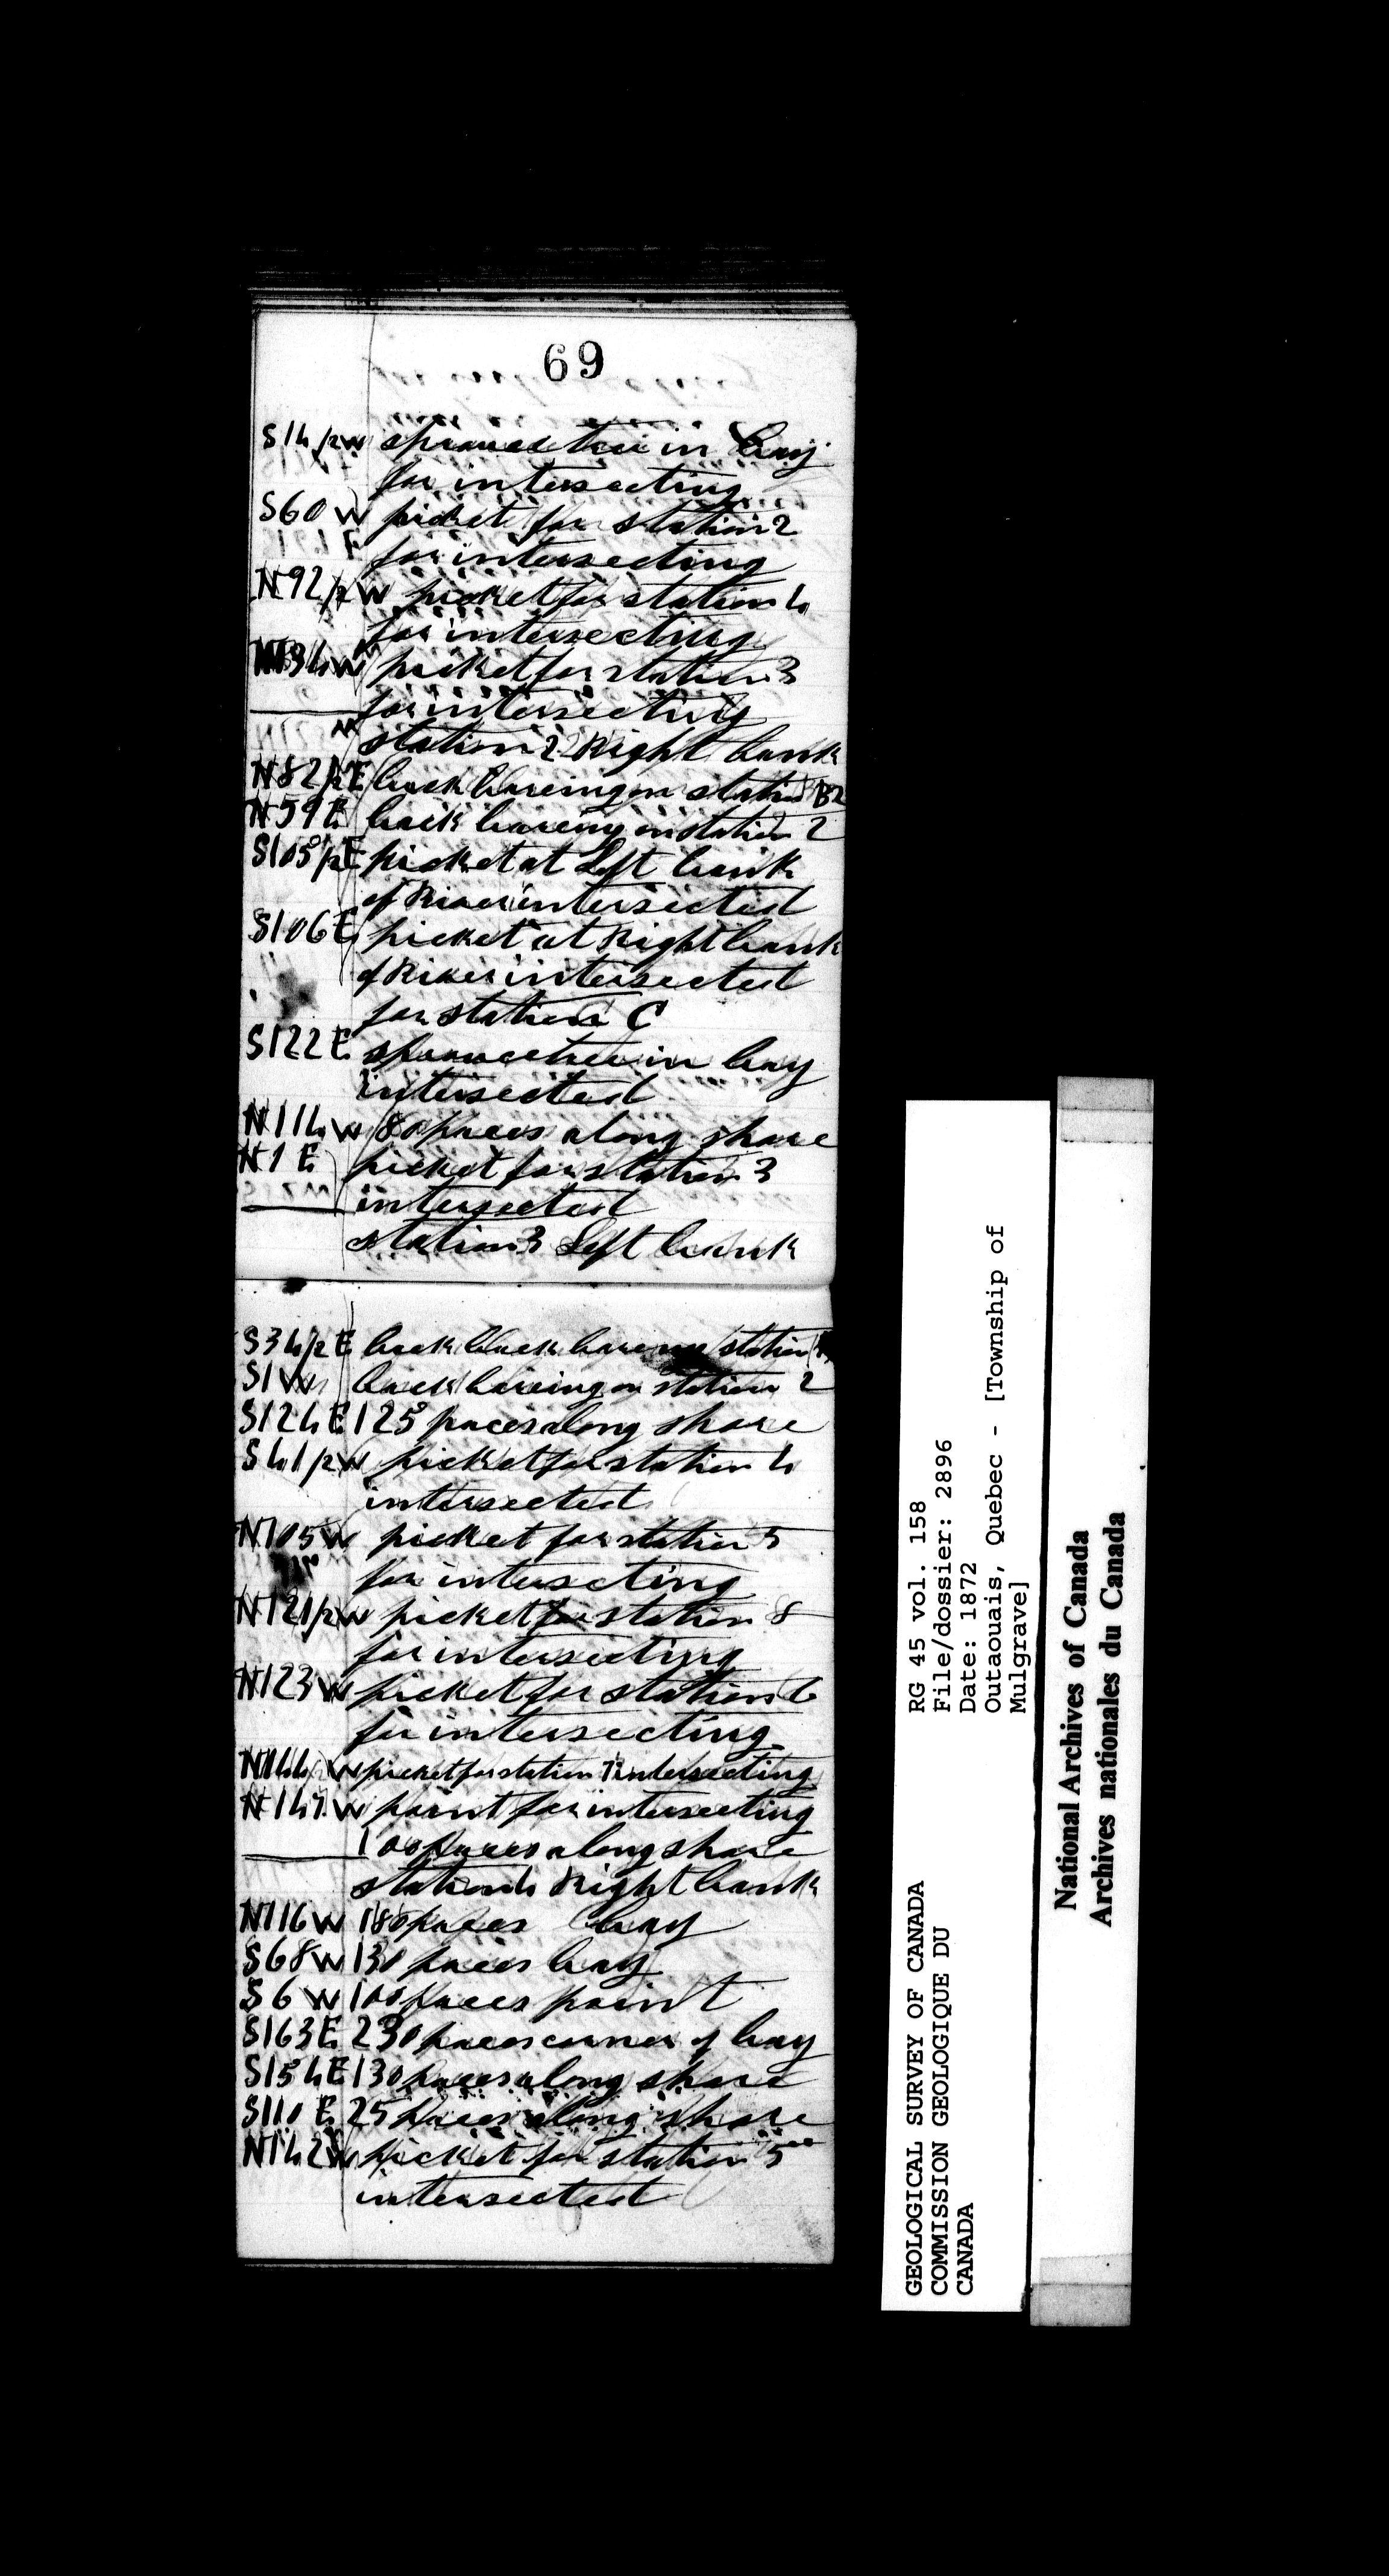 69
S14/2W spruce tree in bay
for intersecting
S60W picket for station 2
for intersecting
N92/2W picket for station 4
for intersecting
34W picket for station 3
for intersecting
station 2 Right bank
N82/2E back bareing on station B2
N59E back bareing on station 2
S105/2E picket at Left bank
of River intersected
S106E picket at Right bank
of River intersected
for station C
S122E spruce tree in bay
intersected
N114W 80 paces along shore
N1E picket for station 3
intersected
station 3 Left bank
S34/2E back back bareing station
S1W back bareing on station 2
S124E 125 paces along shore
S41/2W picket for station 4
intersected
N105W picket for station 5
for intersecting
N121/2W picket for station 8
for intersecting
N123W picket for station 6
for intersecting
N144W picket for station 7 intersecting
N147W point for intersecting
100 paces along shore
station 4 Right bank
N116W 180 paces bay
S68W 130 paces bay
S6W 100 paces point
S163E 230 paces corner of bay
S154E 130 paces along shore
S110E 25 paces along shore
N142W picket for station 5
intersected
GEOLOGICAL SURVEY OF CANADA
COMMISSION GEOLOGIQUE DU
CANADA
RG 45 vol. 158
File/dossier: 2896
Date: 1872
Outaouais, Quebec - [Township of
Mulgrave]
National Archives of Canada
Archives nationales du Canada